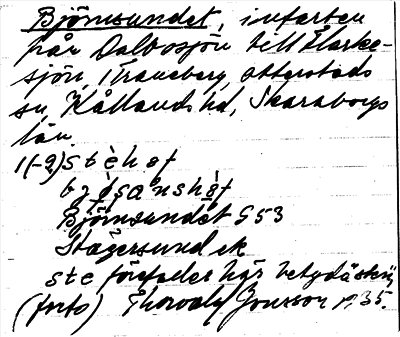 Björnsundet, infarten
från Dalbosjön till Ålarke-
sjön, Traneberg, Otterstads
sn, Kållands hd, Skaraborgs
län.
1(-2) stèhǝf
Björnsundet G 53
Stägersund ek
ste företedes här betydaste
(forts) Thorvald Jonsson p. 35.